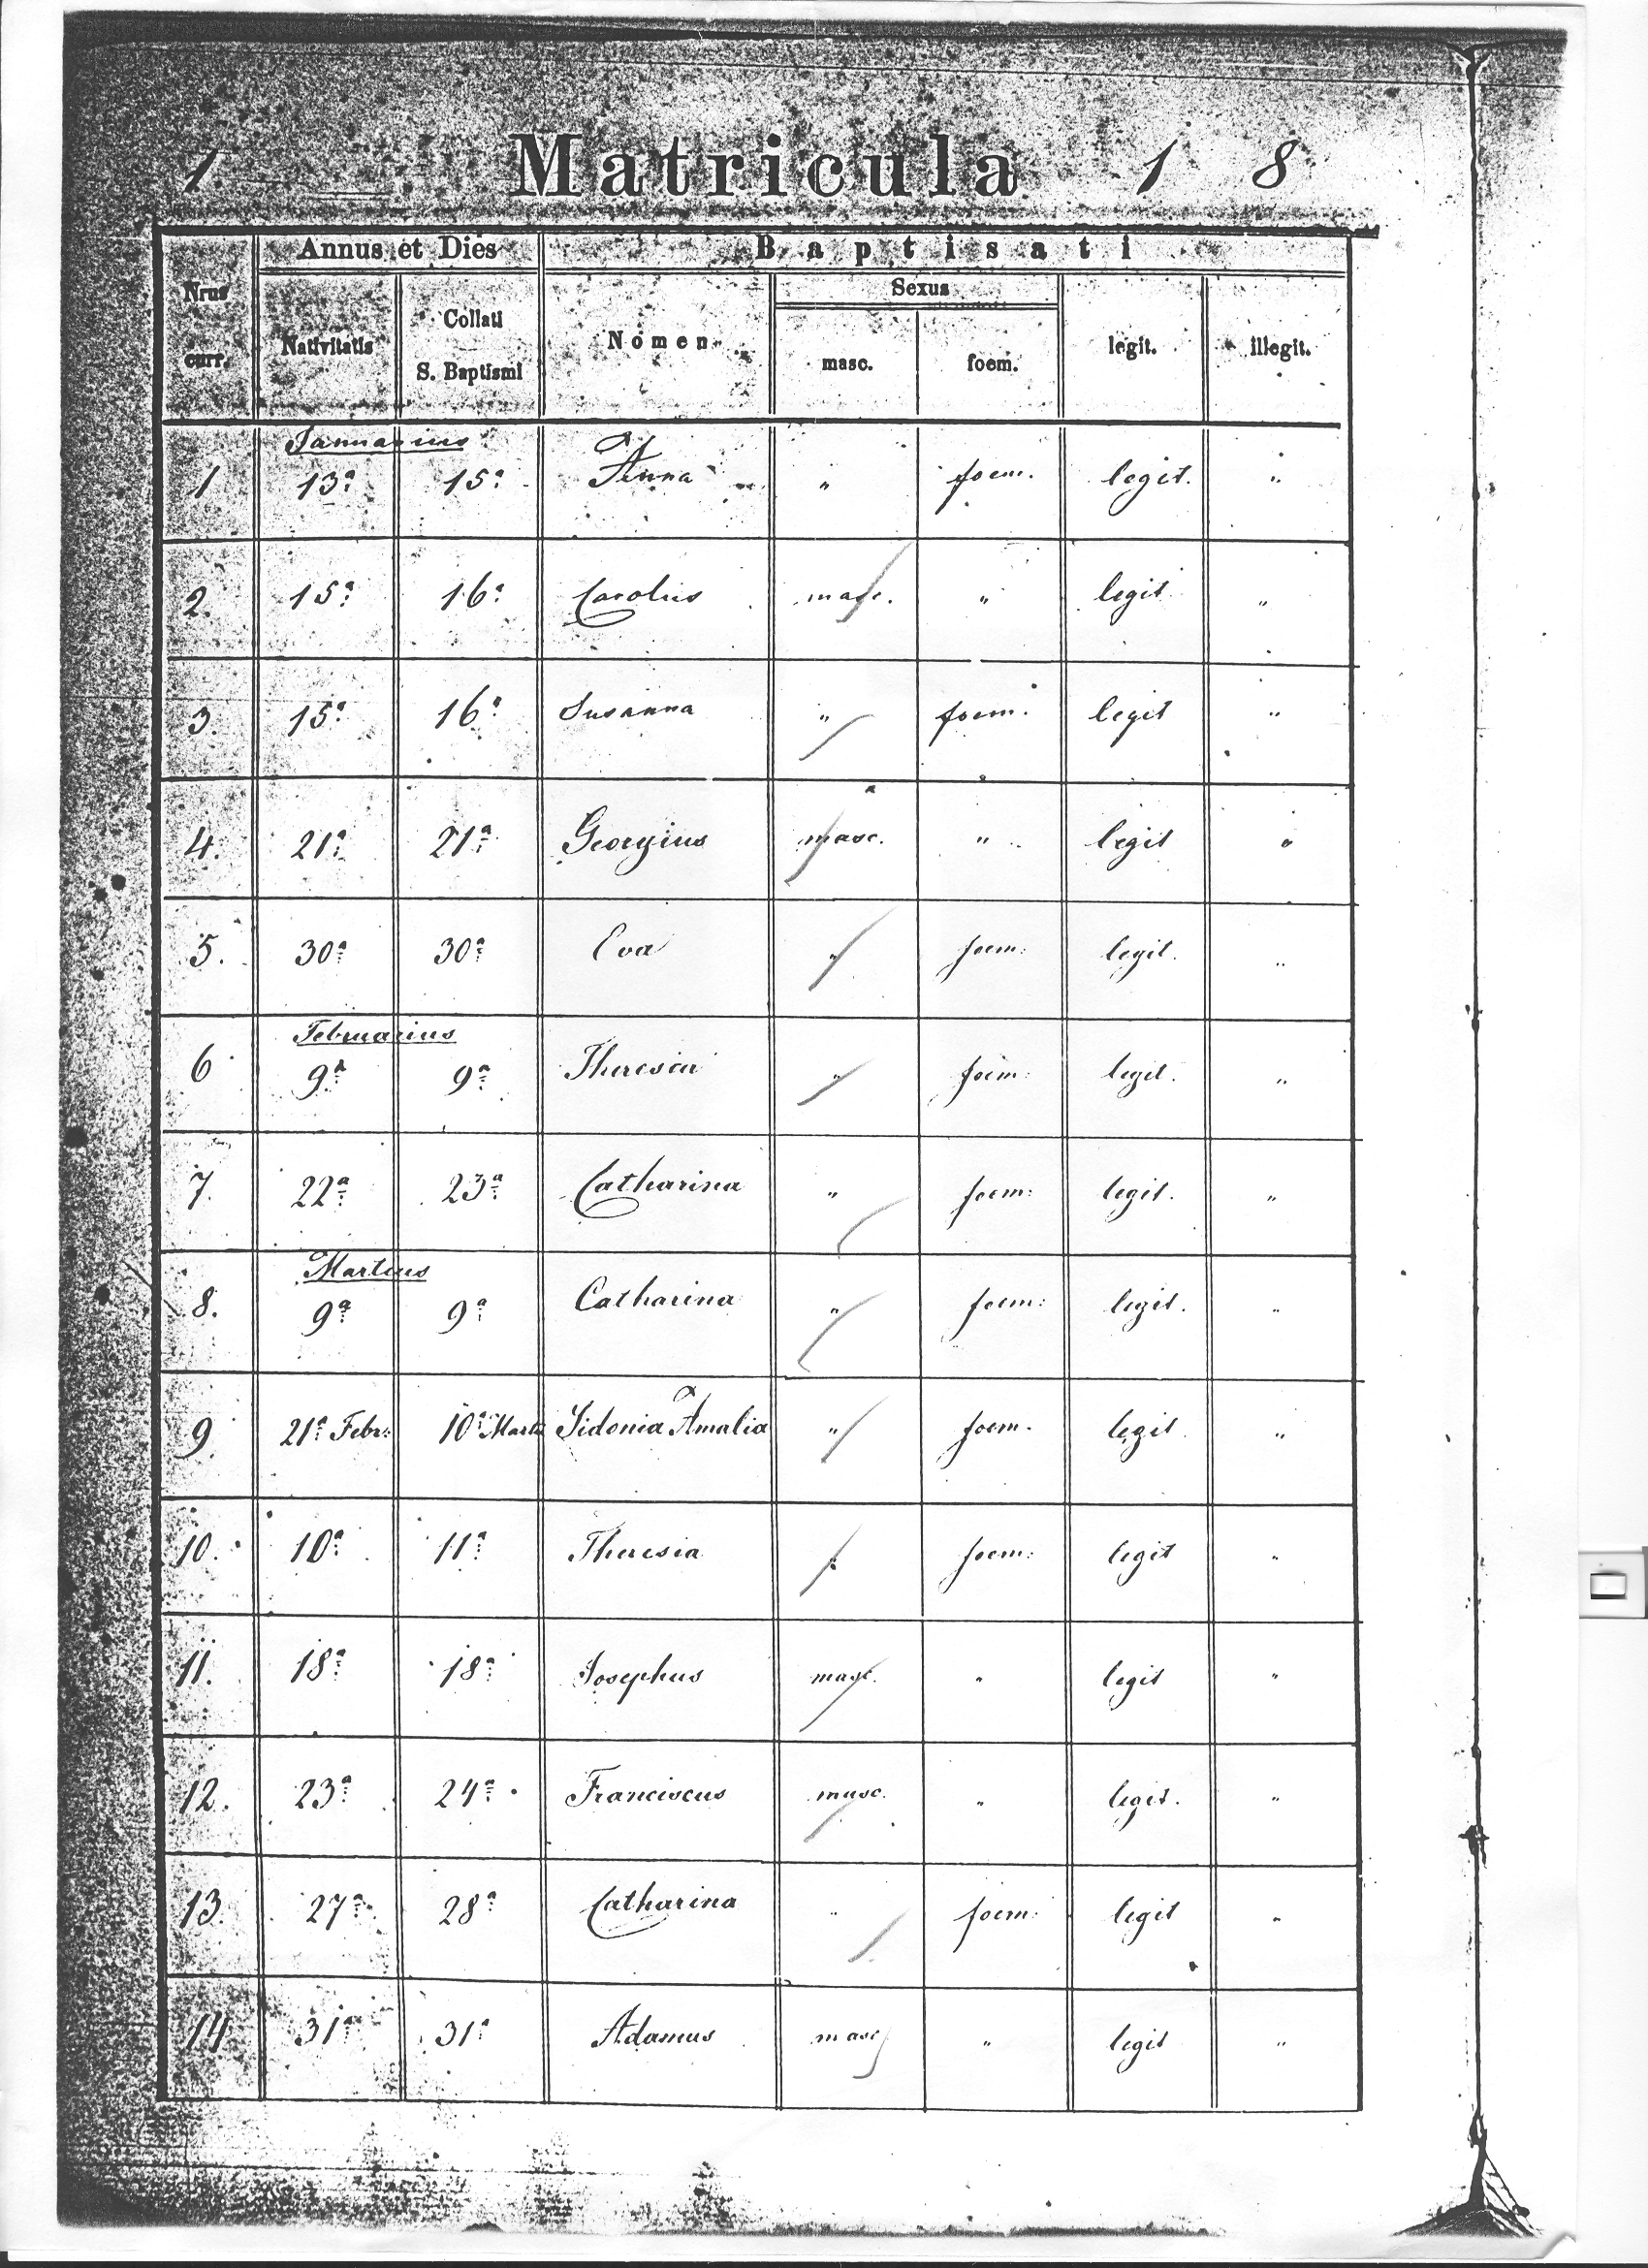 1 Matricula 1 8
Annus et Dies Baptisati
Nrus curr. Nativitatis Collati S. Baptismi Nomen Sexus legit. illegit.
masc. foem.
Januarius
1 13ª 15ª Anna " foem. legit. "
2. 15ª 16ª Carolus masc. " legit "
3. 15ª 16ª Susanna " foem. legit "
4. 21ª 21ª Georgius masc. " legit "
5. 30ª 30ª Eva " foem: legit. "
Februarius
6 9ª 9ª Theresia " foem: legit. "
7. 22ª 23ª Catharina " foem: legit. "
Martius
8. 9ª 9ª Catharina " foem: legit. "
9 21ª Febr: 10ª Martii Sidonia Amalia " foem. legit. "
10. 10ª 11ª Theresia " foem: legit "
11. 18ª 18ª Josephus masc. " legit "
12. 23ª 24ª Franciscus masc. " legit. "
13. 27ª 28ª Catharina " foem: legit "
14 31ª 31ª Adamus masc " legit "